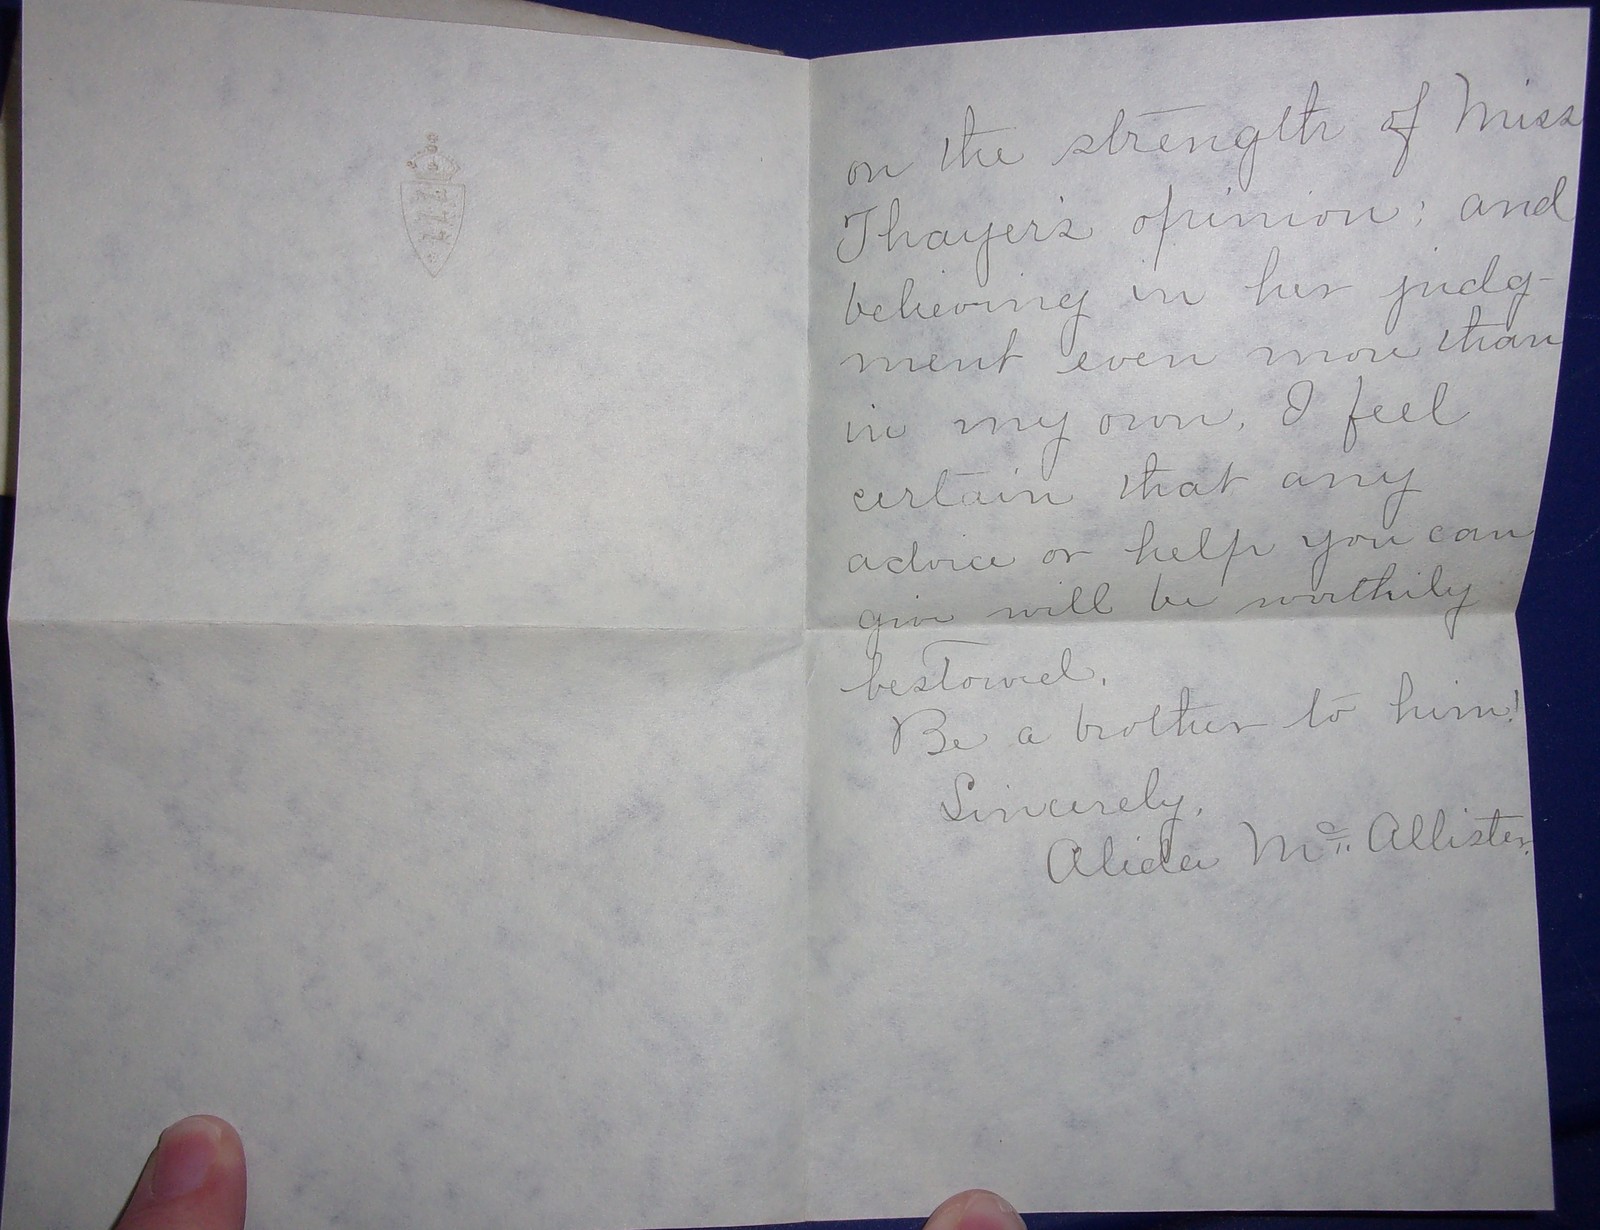 on the strength of Miss
Thayer's opinion; and
believing in her judg-
ment even more than
in my own, I feel
certain that any
advice or help you can
give will be worthily
bestowed.
Be a brother to him!
Sincerely,
Alida Mc. Allister.